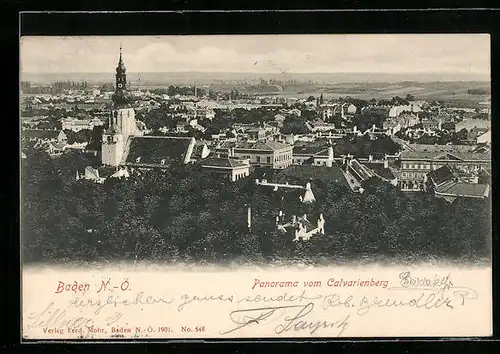 Baden N.-Ö.
Panorama vom Calvarienberg
herzlichen gruss sendet Rob. Brendler
Verlag Ferd. Mohr, Baden N.-Ö. 1901. No. 548
Leipzig